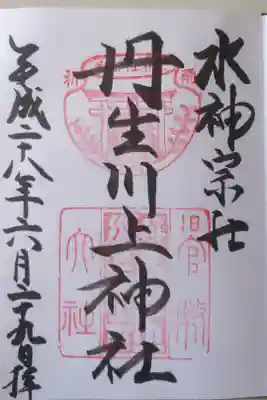 水神宗社
丹生川上神社
平成二十八年六月二十九日拝
旧官幣
大社